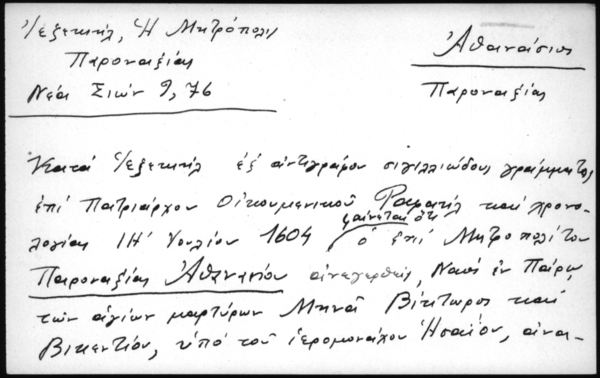 Ἰεζεκιήλ, Ἡ Μητρόπολις
Παροναξίας
Νέα Σιών 9, 76
Ἀθανάσιος
Παροναξίας
Κατά Ἰεζεκιήλ ἐξ ἀντιγράφου σιγιλλιώδους γράμματος
ἐπί Πατριάρχου Οἰκουμενικοῦ Ραφαήλ καί χρονο-
λογίας ΙΗ' Ἰουλίου 1604 φαίνεται ὅτι ὁ ἐπί Μητροπολίτου
Παροναξίας Ἀθανασίου ἀνεγερθείς, Ναός ἐν Πάρῳ
τῶν ἁγίων μαρτύρων Μηνᾶ Βίκτωρος καί
Βικεντίου, ὑπό τοῦ ἱερομονάχου Ἠσαΐου, ἀνα-